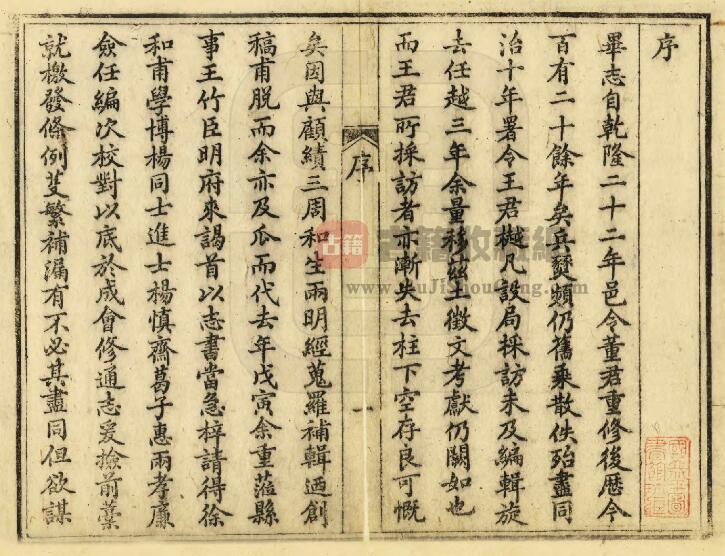 序
畢志自乾隆二十二年邑令董君重修後歷今
百有二十餘年矣兵燹頻仍舊乘散佚殆盡同
治十年署令王君樾凡設局採訪未及編輯旋
去任越三年余量移茲土徵文考獻仍闕如也
而王君所採訪者亦漸失去柱下空存良可慨
序
一
矣因與顧績三周和生兩明經蒐羅補輯迺創
稿甫脫而余亦及瓜而代去年戊寅余重蒞縣
事王竹臣明府來謁首以志書當急梓請得徐
和甫學博楊同士進士楊慎齋葛子惠兩孝廉
僉任編次校對以底於成會修通志爰撿前藁
就檄發條例芟繁補漏有不必其盡同但欲謀
古籍
古籍收藏網
www.GuJiShouCang.com